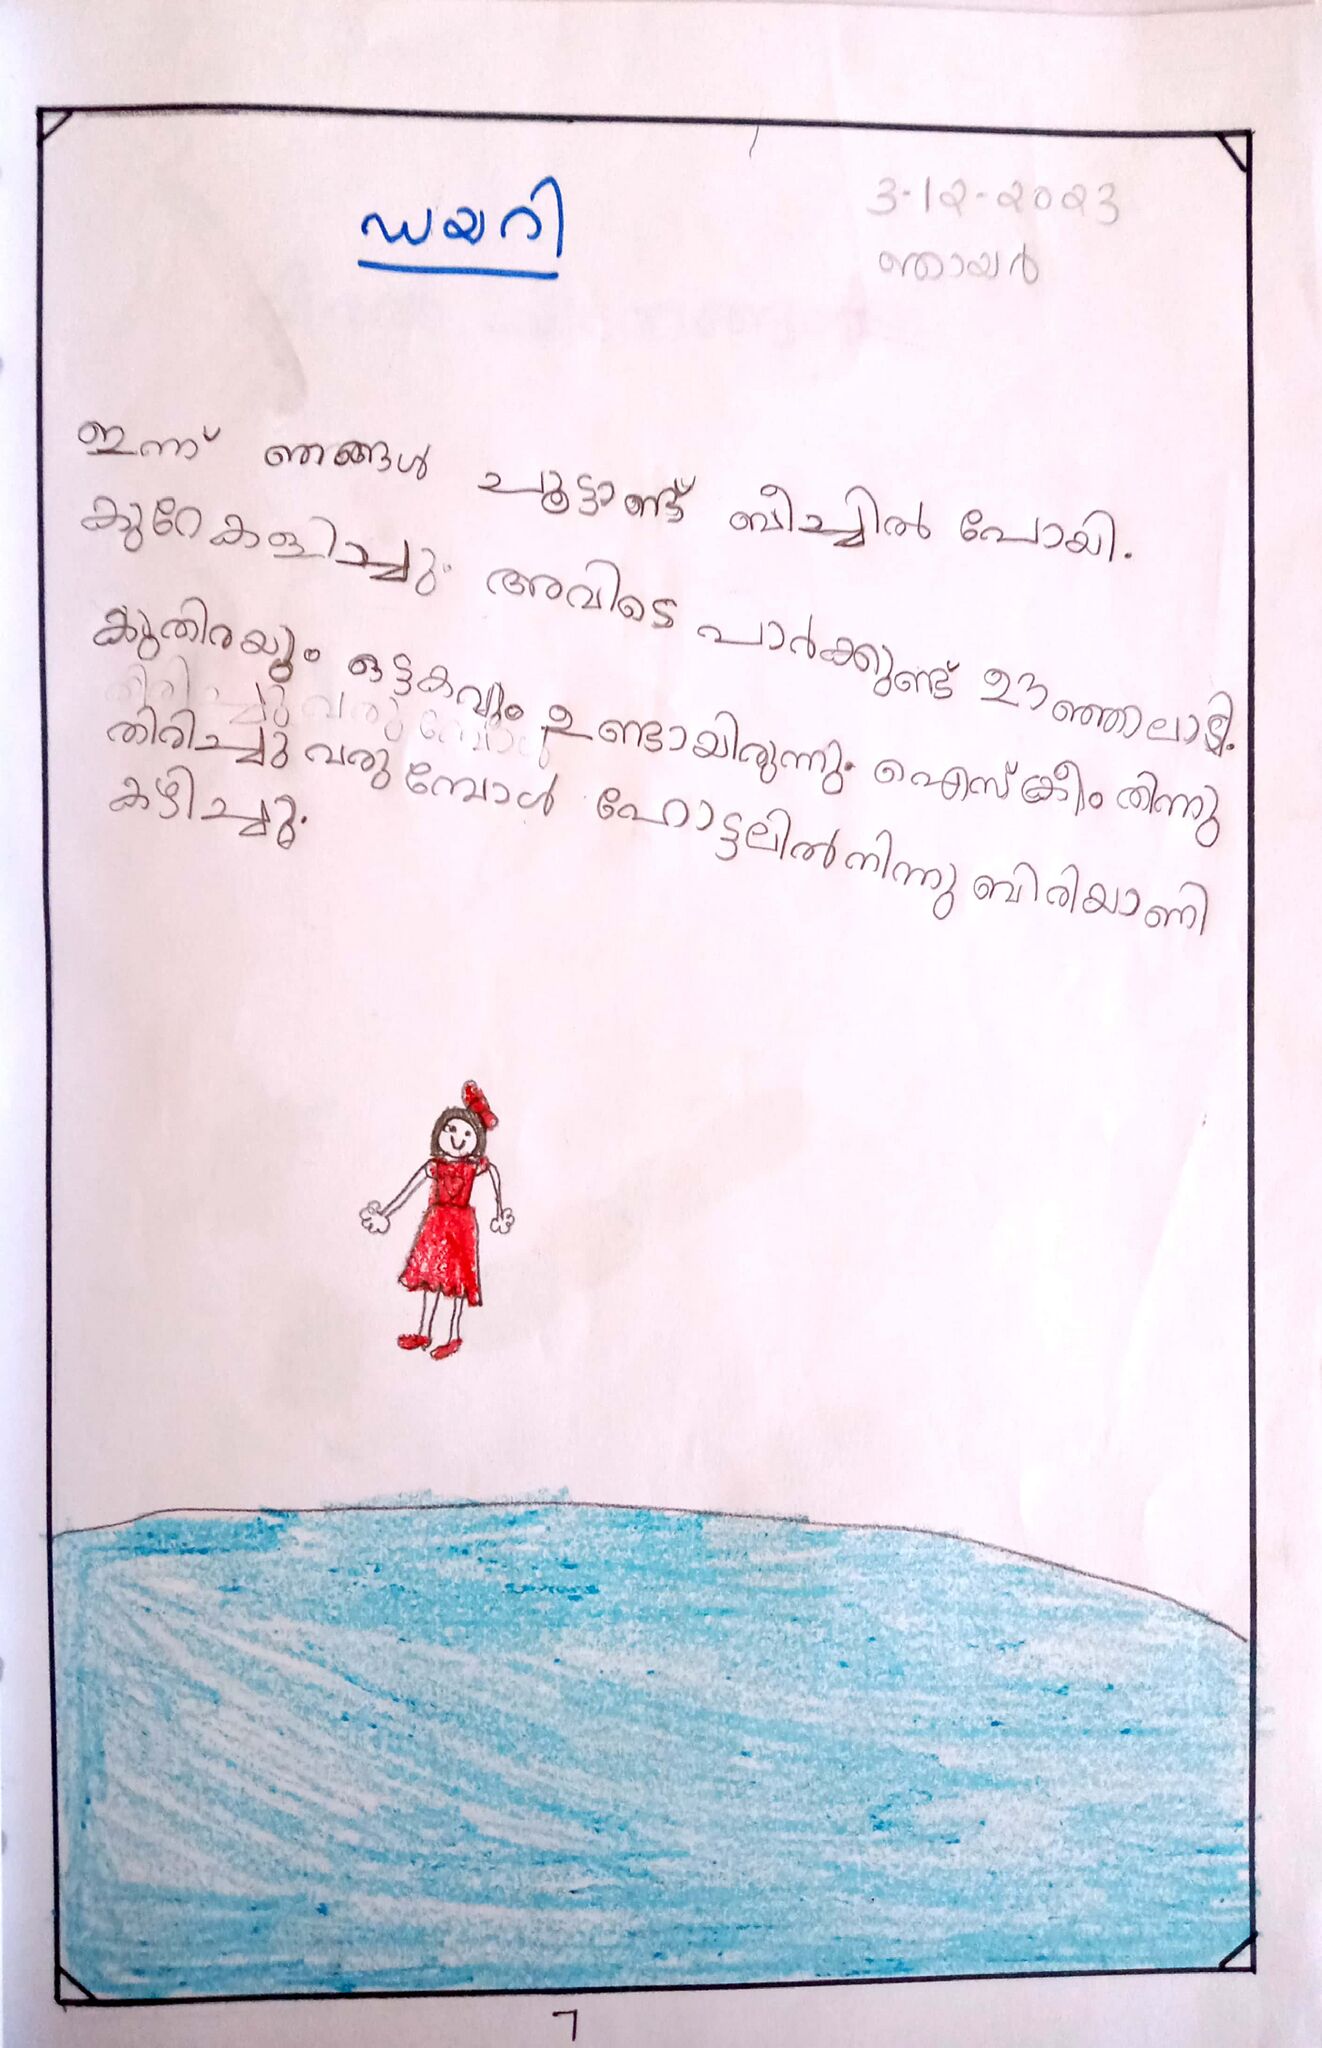 ഡയറി
3-12-2023
ഞായർ
ഇന്ന് ഞങ്ങൾ ചൂട്ടാണ്ട് ബീച്ചിൽ പോയി.
കുറേകളിച്ചു. അവിടെ പാർക്കുണ്ട് ഊഞ്ഞലാടി.
കുതിരയും ഒട്ടകവും ഉണ്ടായിരുന്നു. ഐസ്ക്രീം തിന്നു
തിരിച്ചു വരുമ്പോൾ ഹോട്ടലിൽ നിന്നു ബിരിയാണി
കഴിച്ചു.
7